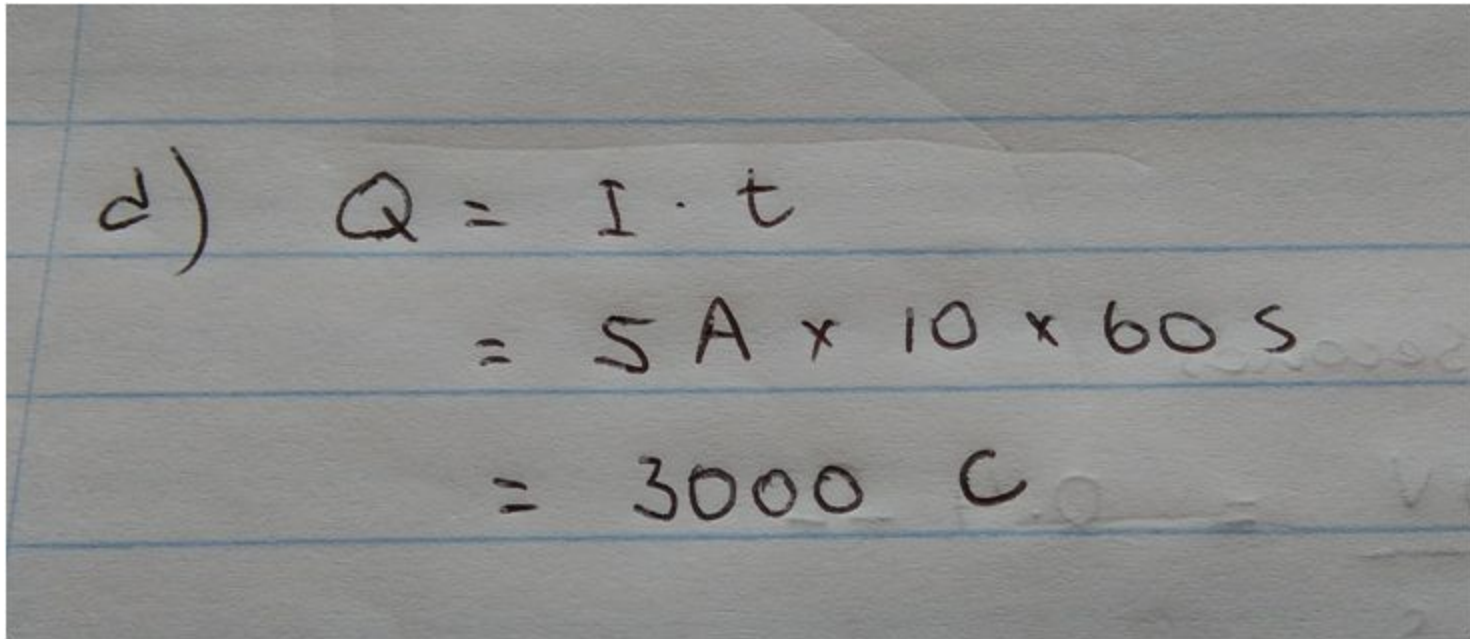 d) Q = I · t
= 5 A × 10 × 60 s
= 3000 C